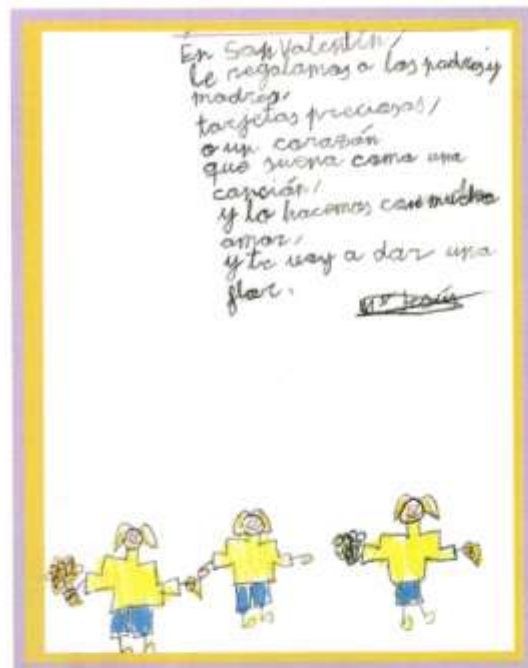 En San Valentín,
le regalamos a los padres y
madres,
tarjetas preciosas,
o un corazón
que suena como una
canción,
y lo hacemos con mucho
amor,
y te voy a dar una
flor.
Mª Jesús